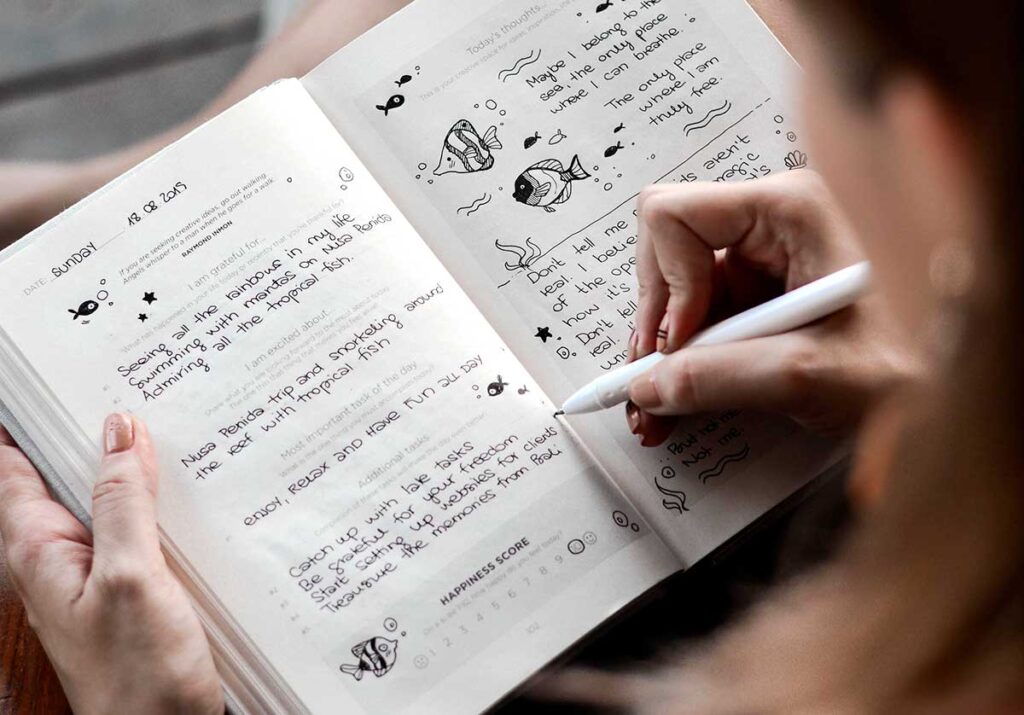 DATE SUNDAY 18. 08. 2019
If you are seeking creative ideas, go out walking
Angels whisper to a man when he goes for a walk.
RAYMOND INMON
I am grateful for...
What happened in your life today or recently that you're thankful for?
Seeing all the rainbows in my life
Swimming with mantas on Nusa Penida
Admiring all the tropical fish.
I am excited about...
Nusa Penida trip and snorkeling around
the reef with tropical fish
Most important task of the day
ENJOY, RELAX AND HAVE FUN ALL DAY
Additional tasks
Catch up with late tasks
Be grateful for your freedom
Start setting up websites for clients
Treasure the memories from Bali
HAPPINESS SCORE
1 2 3 4 5 6 7 8 9
102
Today's thoughts...
This is your creative space for ideas, inspiration,
Maybe I belong to the
sea, the only place
where I can breathe.
The only place
where I am
truly free.
aren't
magic
Don't tell me
real. I believe
of the
how it's
Don't tell
real.
Not me.